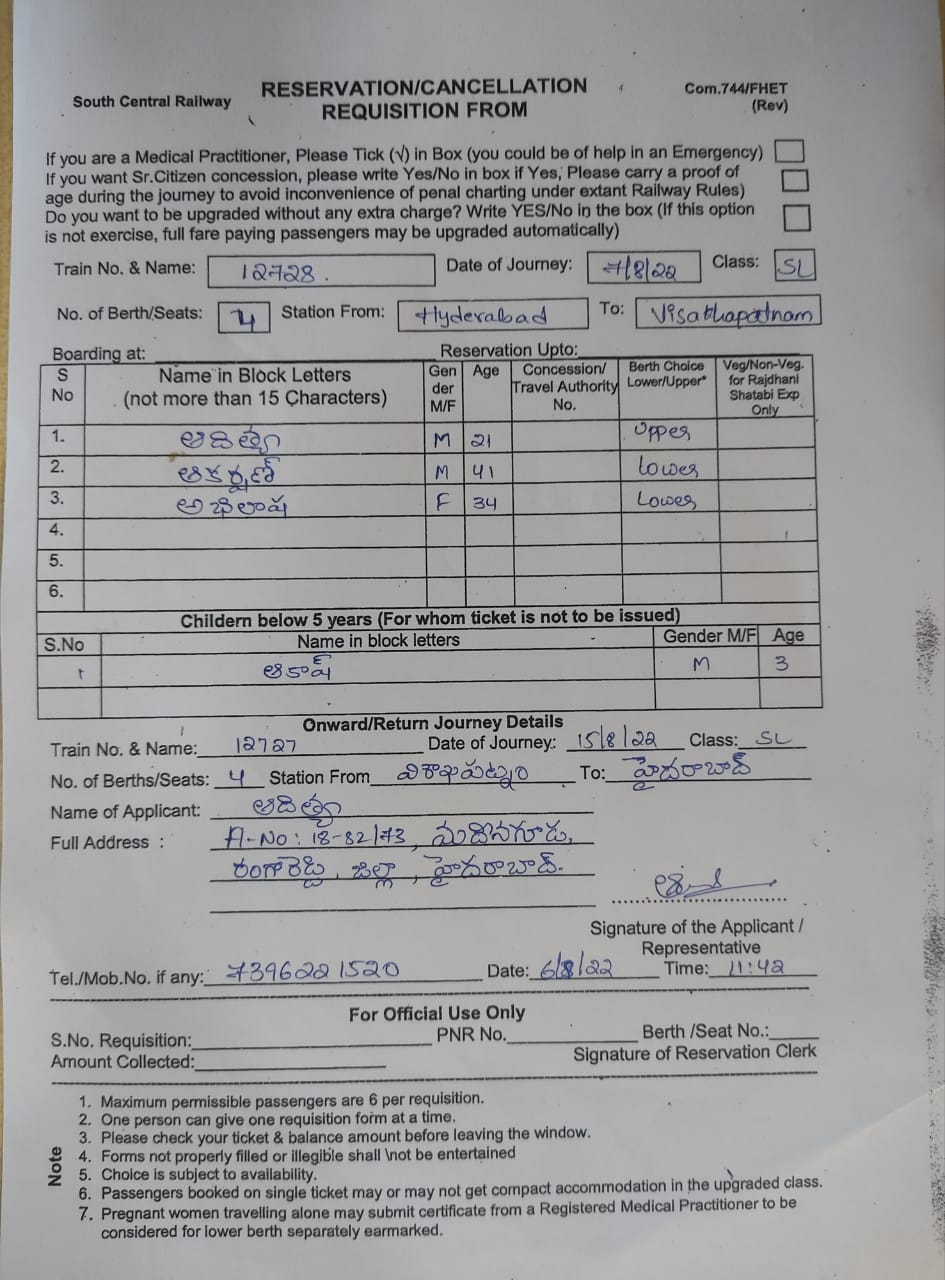 South Central Railway
RESERVATION/CANCELLATION
REQUISITION FROM
Com.744/FHET
(Rev)
If you are a Medical Practitioner, Please Tick (√) in Box (you could be of help in an Emergency)
If you want Sr.Citizen concession, please write Yes/No in box if Yes, Please carry a proof of
age during the journey to avoid inconvenience of penal charting under extant Railway Rules)
Do you want to be upgraded without any extra charge? Write YES/No in the box (If this option
is not exercise, full fare paying passengers may be upgraded automatically)
Train No. & Name: 12728. Date of Journey: 7/8/22 Class: SL
No. of Berth/Seats: 4 Station From: Hyderabad To: Visakhapatnam
Boarding at: Reservation Upto:
S No Name in Block Letters (not more than 15 Characters) Gen der M/F Age Concession/ Travel Authority No. Berth Choice Lower/Upper* Veg/Non-Veg. for Rajdhani Shatabi Exp Only
1. ఆదిత్య M 21 Upper
2. ఆకర్షణ్ M 41 Lower
3. అభిలాష F 34 Lower
4.
5.
6.
Childern below 5 years (For whom ticket is not to be issued)
S.No Name in block letters Gender M/F Age
1 ఆకాష్ M 3
Onward/Return Journey Details
Train No. & Name: 12727 Date of Journey: 15/8/22 Class: SL
No. of Berths/Seats: 4 Station From విశాఖపట్నం To: హైదరాబాద్
Name of Applicant: ఆదిత్య
Full Address : H-No: 18-82/73, మదీనగూడ,
రంగారెడ్డి, జిల్లా, హైదరాబాద్.
Signature of the Applicant /
Representative
Tel./Mob.No. if any: 7396221520 Date: 6/8/22 Time: 11:42
For Official Use Only
S.No. Requisition: PNR No. Berth /Seat No.:
Amount Collected: Signature of Reservation Clerk
Note
1. Maximum permissible passengers are 6 per requisition.
2. One person can give one requisition form at a time.
3. Please check your ticket & balance amount before leaving the window.
4. Forms not properly filled or illegible shall \not be entertained
5. Choice is subject to availability.
6. Passengers booked on single ticket may or may not get compact accommodation in the upgraded class.
7. Pregnant women travelling alone may submit certificate from a Registered Medical Practitioner to be
considered for lower berth separately earmarked.